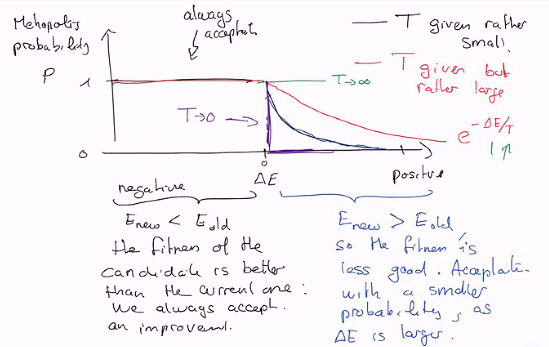 Metropolis
probability
P
always
acceptab.
1
0
T→0
T→∞
— T given rather
small.
— T given but
rather large
e^-ΔE/T
1 ↑
0
ΔE
negative
positive
Enew < Eold
the fitness of the
candidate is better
than the current one:
we always accept.
an improvement.
Enew > Eold,
so the fitness is
less good. Acceptation
with a smaller
probability, as
ΔE is larger.